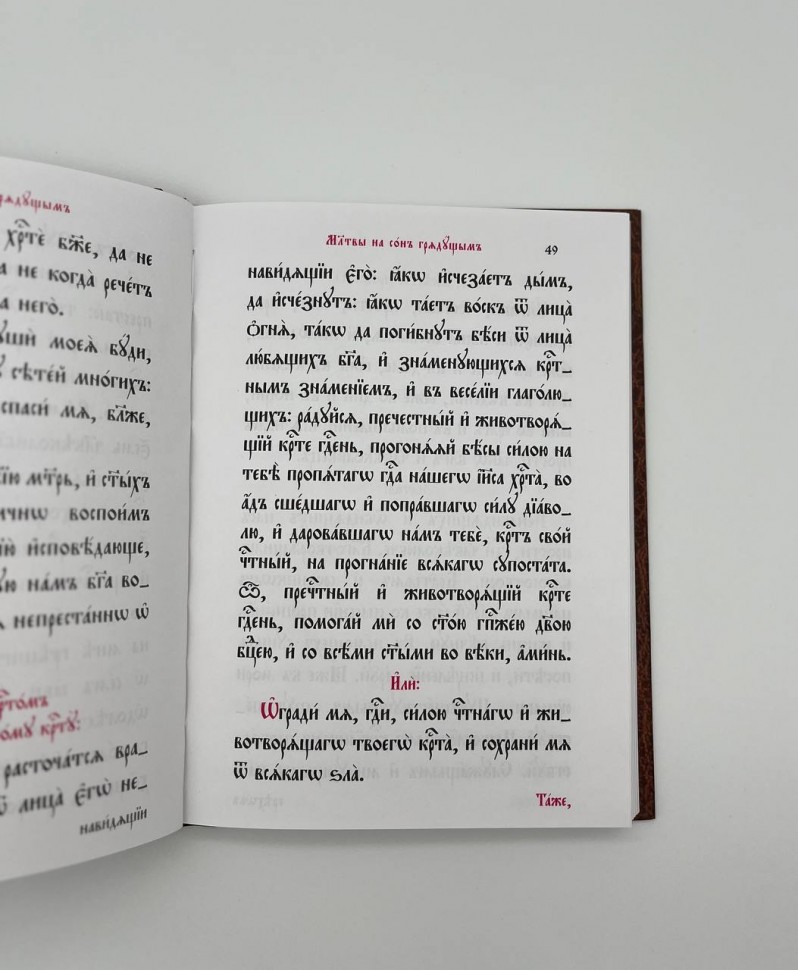 рѧдꙋ́щымъ
хрⷭ҇тѐ бж҃е, да не
не когда̀ рече́тъ
него̀.
моеѧ̀ бꙋ́ди,
сѣте́й мно́гихъ:
спасѝ мѧ, бл҃же,
мт҃рь, и҆ ст҃ы́хъ
воспои́мъ
и҆сповѣ́дающе,
на́мъ бг҃а во_
непреста́ннѡ ѡ҆
крⷭ҇тꙋ̀:
расточа́тсѧ вра_
лица̀ є҆гѡ̀ не_
нави́дѧщїи
Мл҃твы на со́нъ грѧдꙋ́щымъ
49
нави́дѧщїи є҆го̀: ꙗ҆́кѡ и҆счеза́етъ ды́мъ,
да и҆сче́знꙋтъ: ꙗ҆́кѡ та́етъ во́скъ ѿ лица̀
ѻ҆гнѧ̀, та́кѡ да поги́бнꙋтъ бѣ́си ѿ лица̀
лю́бѧщихъ бг҃а, и҆ зна́менꙋющихсѧ крⷭ҇т_
нымъ зна́менїемъ, и҆ въ весе́лїи глаго́лю_
щихъ: ра́дꙋйсѧ, пречестны́й и҆ животворѧ́_
щїй крⷭ҇те гдⷭ҇ень, прогонѧ́ѧй бѣ́сы си́лою на
тебѣ̀ пропѧ́тагѡ гдⷭ҇а на́шегѡ і҆и҃са хрⷭ҇та̀, во
а҆́дъ сше́дшагѡ и҆ попра́вшагѡ си́лꙋ дїа́во_
лю, и҆ дарова́вшагѡ на́мъ тебѐ, крⷭ҇тъ сво́й
чⷭ҇тны́й, на прогна́нїе всѧ́кагѡ сꙋпоста́та.
Ѽ, пречⷭ҇тны́й и҆ животворѧ́щїй крⷭ҇те
гдⷭ҇ень, помога́й мѝ со ст҃о́ю гп҃же́ю дв҃ою
бцⷣею, и҆ со всѣ́ми ст҃ы́ми во вѣ́ки, а҆ми́нь.
И҆лѝ:
Ѡ҆градѝ мѧ, гдⷭ҇и, си́лою чⷭ҇тна́гѡ и҆ жи_
вотворѧ́щагѡ твоегѡ̀ крⷭ҇та̀, и҆ сохранѝ мѧ
ѿ всѧ́кагѡ ѕла̀.
Та́же,